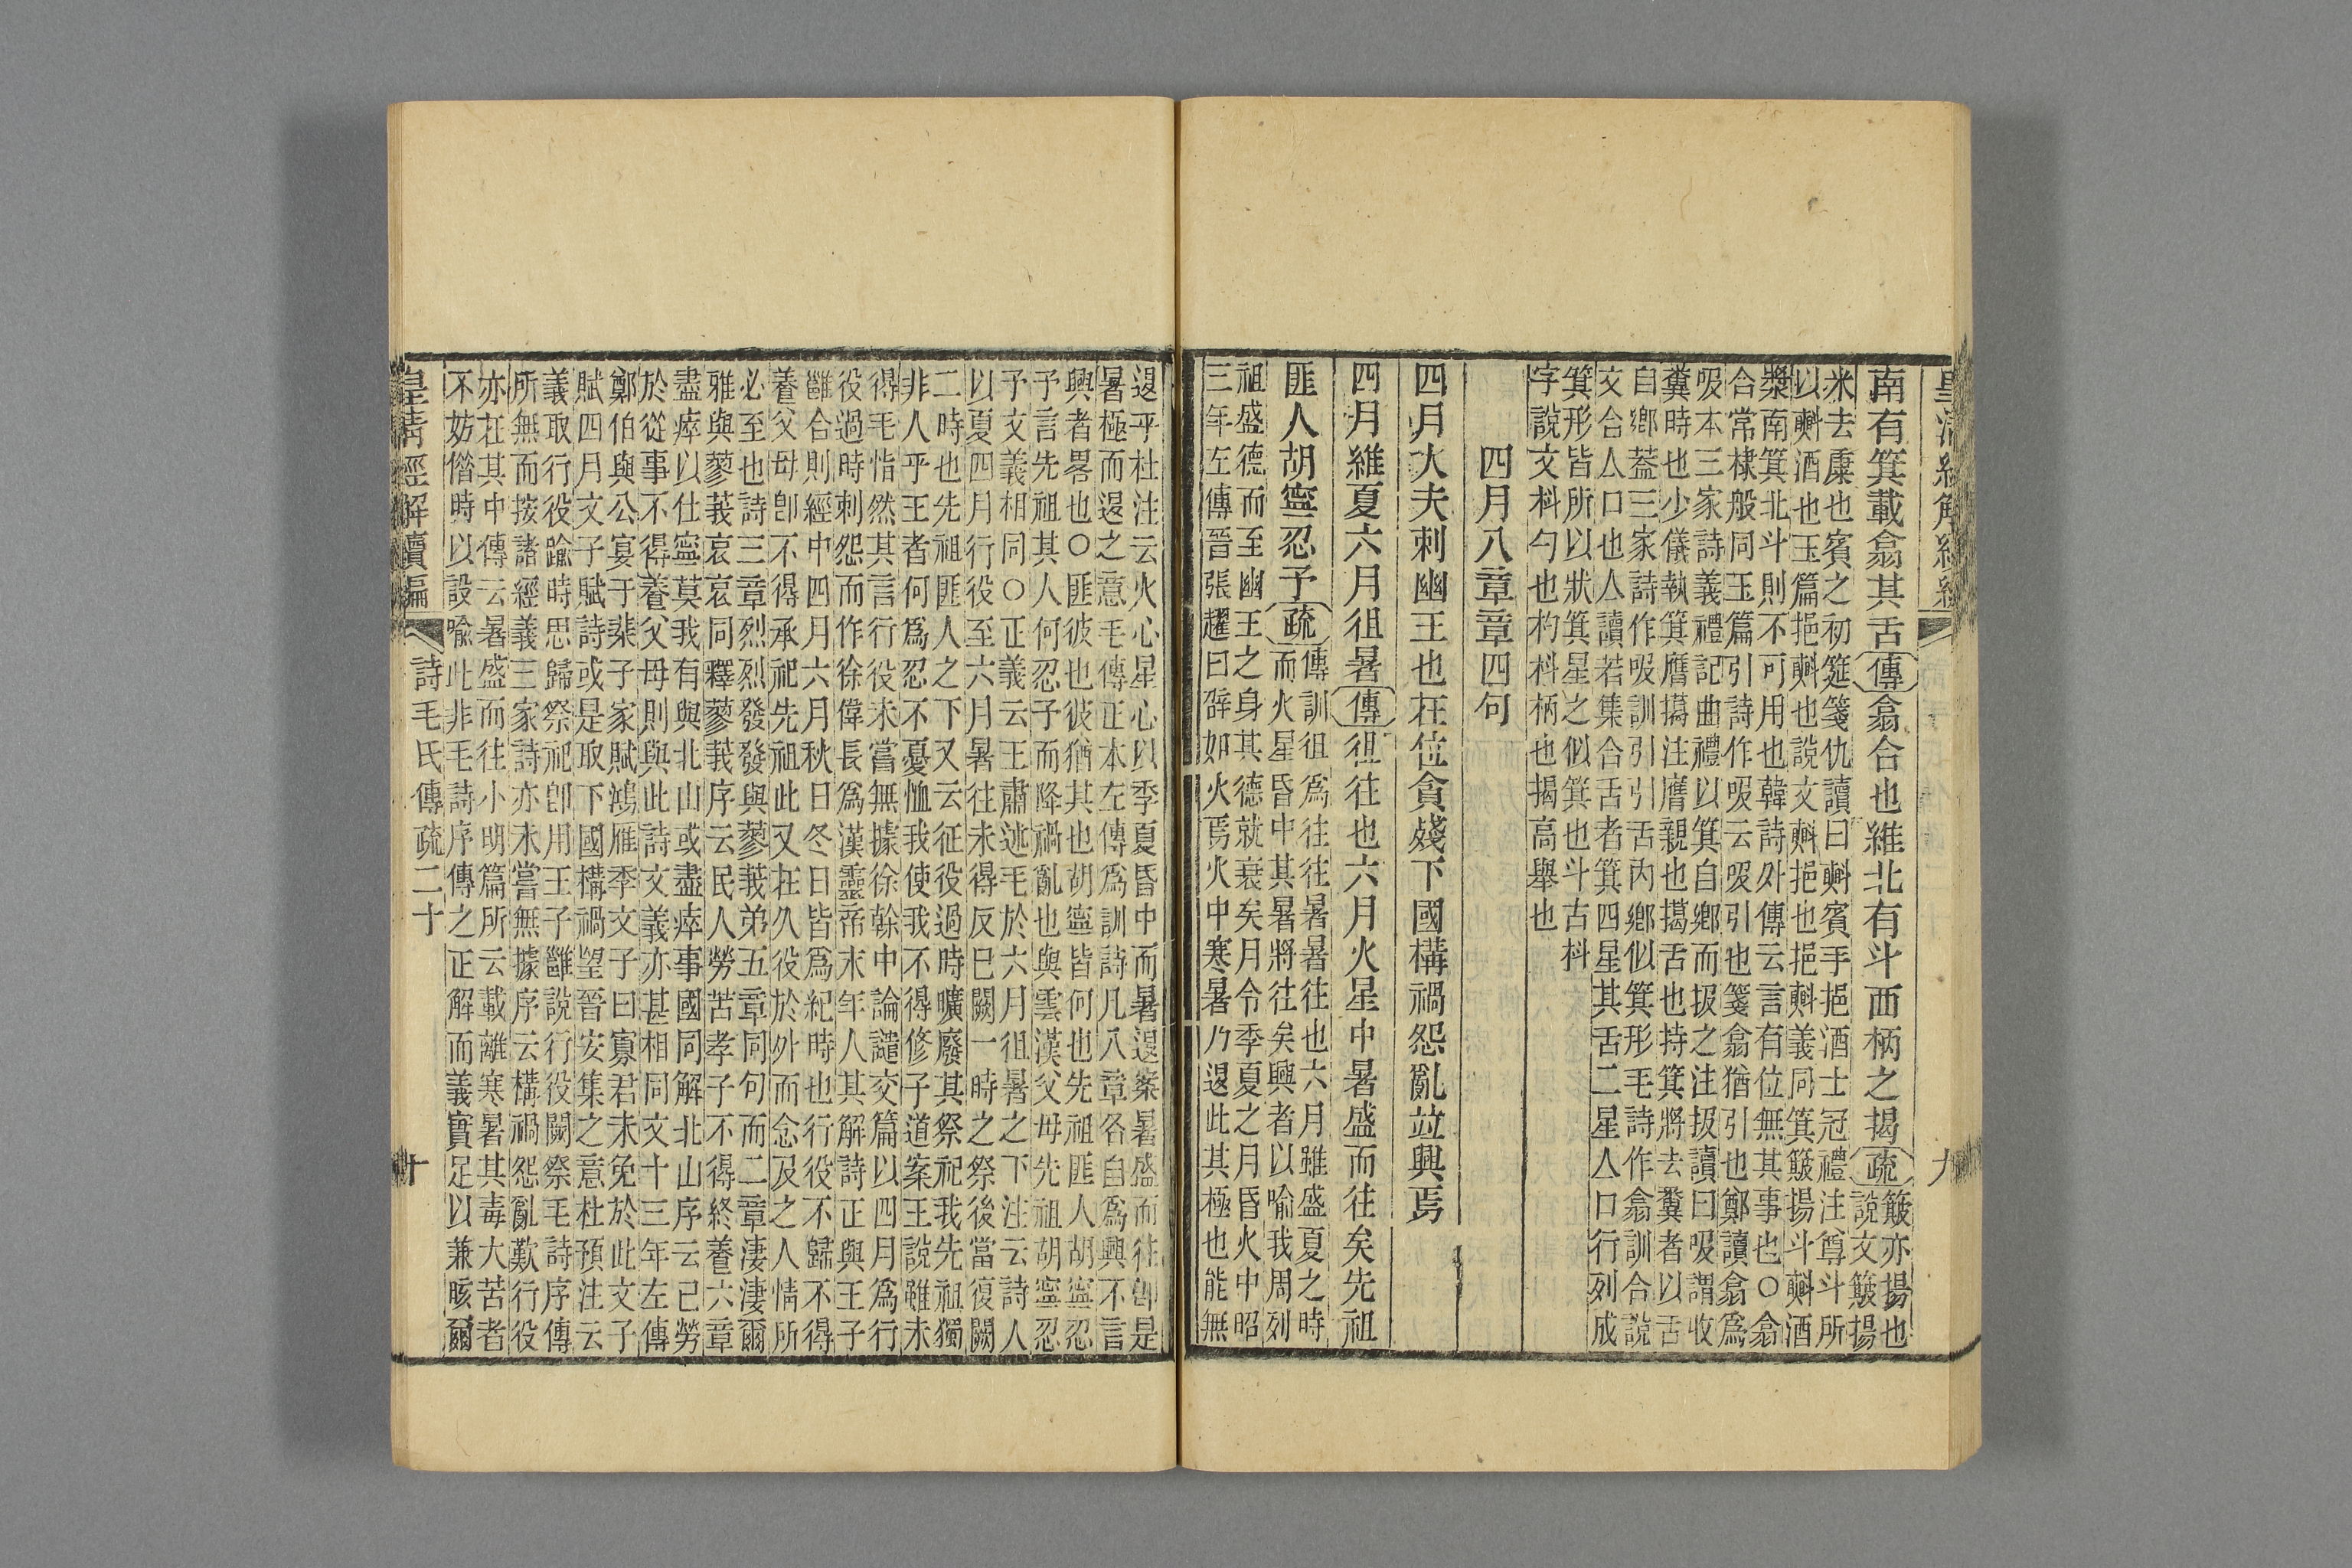 南有箕載翕其舌傳翕合也維北有斗西柄之揭疏簸亦揚也
說文簸揚
米去糠也賓之初筵箋仇讀曰㪺賓手挹酒士冠禮注尊斗所
以㪺酒也玉篇挹㪺也說文㪺挹也挹㪺義同箕簸揚斗㪺酒
漿南箕北斗則不可用也韓詩外傳云言有位無其事也○翕
合常棣般同玉篇引詩作吸云吸引也箋翕猶引也鄭讀翕爲
吸本三家詩義禮記曲禮以箕自鄉而扱之注扱讀曰吸謂收
糞時也少儀執箕膺擖注膺親也擖舌也持箕將去糞者以舌
自鄉葢三家詩作吸訓引引舌內鄉似箕形毛詩作翕訓合說
文合亼口也亼讀若集合舌者箕四星其舌二星亼口行列成
箕形皆所以狀箕星之似箕也斗古枓
字說文枓勺也杓枓柄也揭高舉也
四月八章章四句
四月大夫刺幽王也在位貪殘下國構禍怨亂竝興焉
四月維夏六月徂暑傳徂往也六月火星中暑盛而往矣先祖
匪人胡寧忍予疏傳訓徂爲往往暑暑往也六月雖盛夏之時
而火星昏中其暑將往矣興者以喻我周列
祖盛德而至幽王之身其德就衰矣月令季夏之月昏火中昭
三年左傳晉張趯曰辟如火焉火中寒暑乃退此其極也能無
退乎杜注云火心星心以季夏昏中而暑退案暑盛而往卽是
暑極而退之意毛傳正本左傳爲訓詩凡八章各自爲興不言
興者畧也○匪彼也彼猶其也胡寧皆何也先祖匪人胡寧忍
予言先祖其人何忍予而降禍亂也與雲漢父母先祖胡寧忍
予文義相同○正義云王肅述毛於六月徂暑之下注云詩人
以夏四月行役至六月暑往未得反已闕一時之祭後當復闕
二時也先祖匪人之下又云征役過時曠廢其祭祀我先祖獨
非人乎王者何爲忍不憂恤我使我不得修子道案王說雖未
得毛恉然其言行役未嘗無據徐幹中論譴交篇以四月爲行
役過時刺怨而作徐偉長爲漢靈帝末年人其解詩正與王子
雝合則經中四月六月秋日冬日皆爲紀時也行役不歸不得
養父母卽不得承祀先祖此又在久役於外而念及之人情所
必至也詩三章烈烈發發與蓼莪弟五章同句而二章淒淒爾
雅與蓼莪哀哀同釋蓼莪序云民人勞苦孝子不得終養六章
盡瘁以仕寧莫我有與北山或盡瘁事國同解北山序云已勞
於從事不得養父母則與此詩文義亦甚相同文十三年左傳
鄭伯與公宴于棐子家賦鴻雁季文子曰寡君未免於此文子
賦四月文子賦詩或是取下國構禍望晉安集之意杜預注云
義取行役踰時思歸祭祀卽用王子雝說行役闕祭毛詩序傳
所無而按諸經義三家詩亦未嘗無據序云構禍怨亂歎行役
亦在其中傳云暑盛而往小明篇所云載離寒暑其毒大苦者
不妨偕時以設喻此非毛詩序傳之正解而義實足以兼晐爾
皇清經解續編
詩毛氏傳疏二十
十